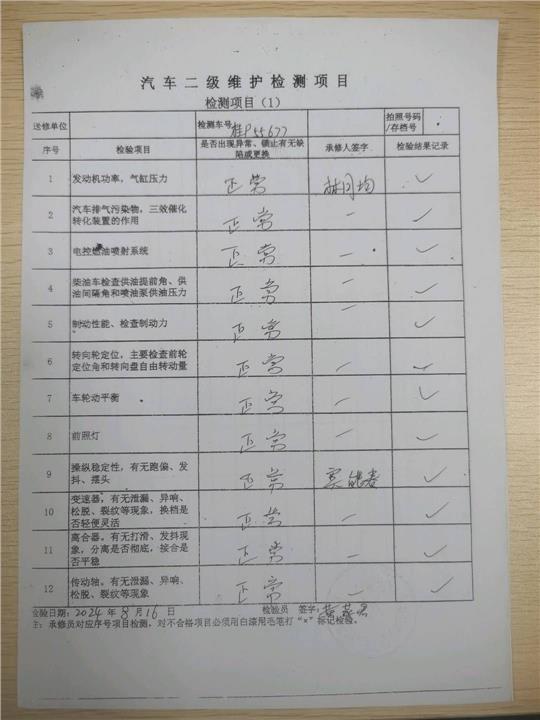 汽车二级维护检测项目
检测项目（1）
送修单位 检测车号 桂P55677 拍照号码/存档号
序号 检验项目 是否出现异常、锁止有无缺陷或更换 承修人签字 检验结果记录
1 发动机功率，气缸压力 正常 ✓
2 汽车排气污染物，三效催化 正常 — ✓
转化装置的作用
3 电控燃油喷射系统 正常 — ✓
4 柴油车检查供油提前角、供 正常 — ✓
油间隔角和喷油泵供油压力
5 制动性能、检查制动力 正常 — ✓
6 转向轮定位，主要检查前轮 正常 — ✓
定位角和转向盘自由转动量
7 车轮动平衡 正常 — ✓
8 前照灯 正常 — ✓
9 操纵稳定性，有无跑偏、发 正常 ✓
抖、摆头
10 变速器，有无泄漏、异响、 正常 — ✓
松脱、裂纹等现象，换档是
否轻便灵活
11 离合器。有无打滑、发抖现 正常 — ✓
象，分离是否彻底，接合是
否平稳
12 传动轴。有无泄漏、异响、 正常 — ✓
松脱、裂纹等现象
检验日期：2024年8月16日 检验员 签字：
注：承修员对应序号项目检测，对不合格项目必须用白漆用毛笔打“×”标记检验。